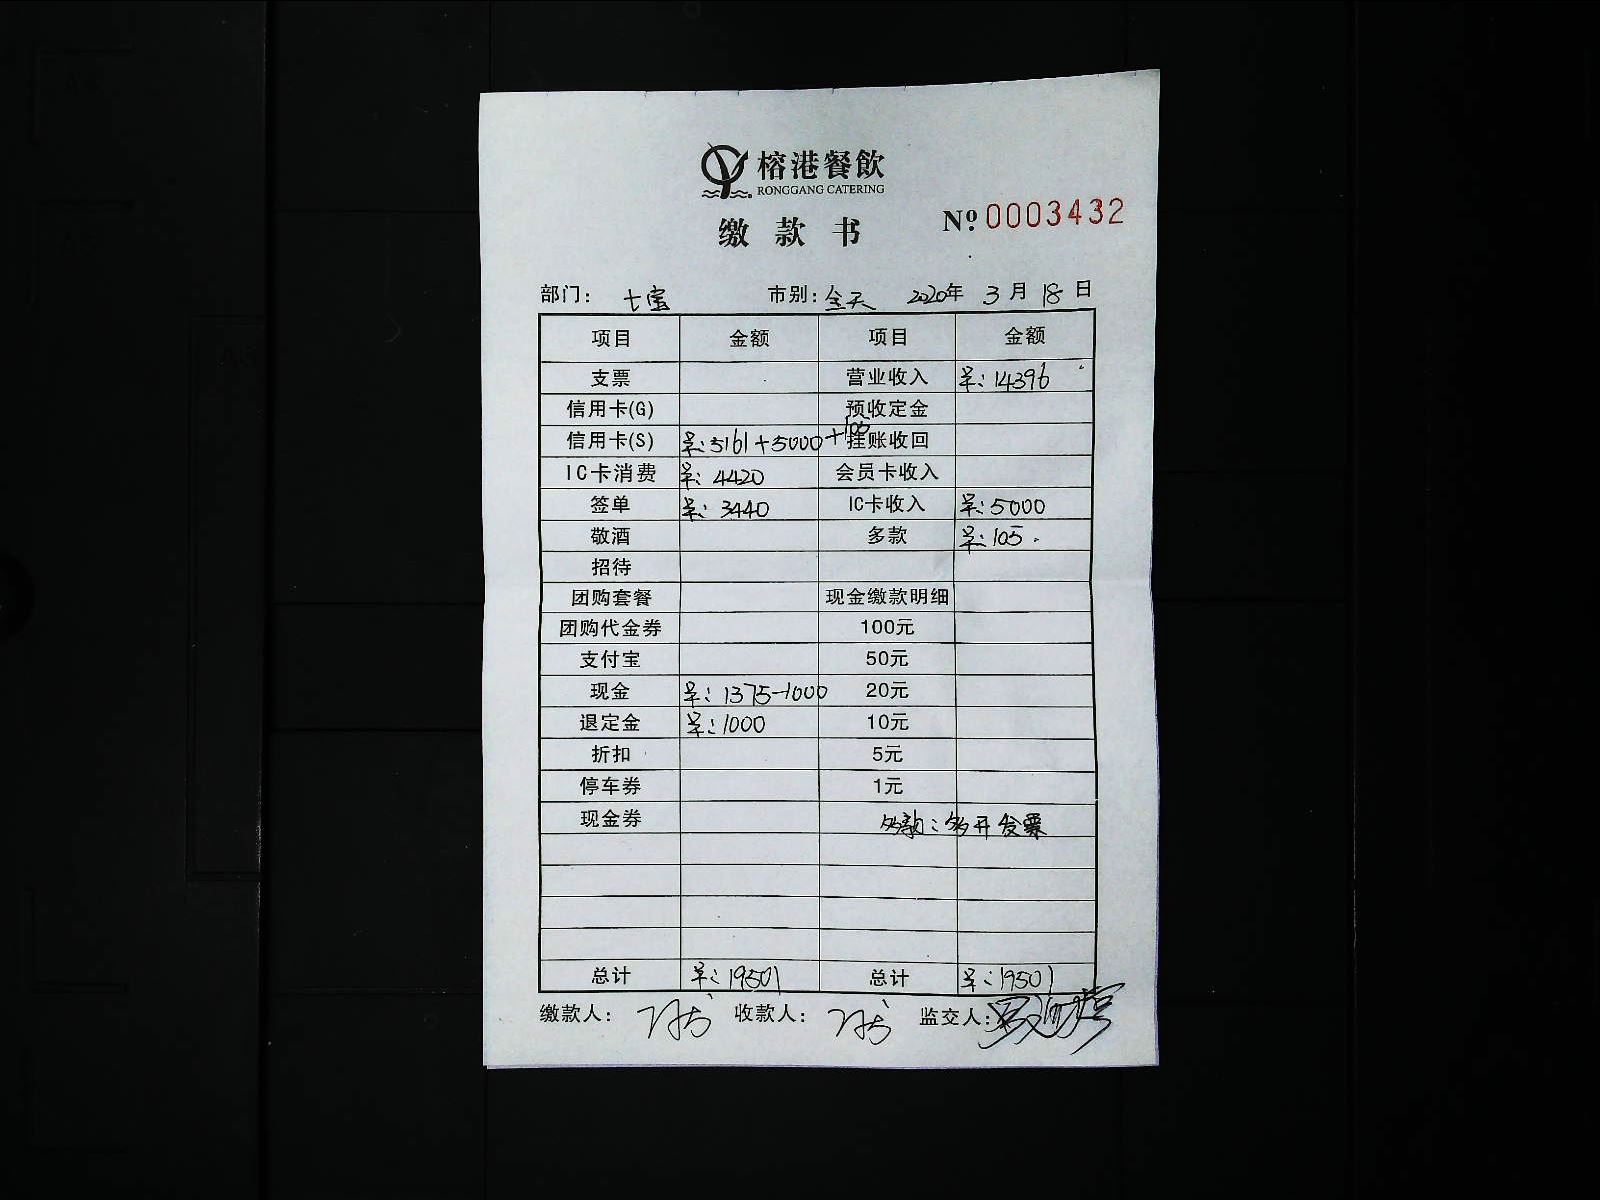 榕港餐飲
RONGGANG CATERING
缴款书
Nº 0003432
部门： 七宝 市别：全天 2020年 3月 18日
项目 金额 项目 金额
支票 营业收入 ¥：14396
信用卡(G) 预收定金
信用卡(S) ¥：5161+5000+105 挂账收回
IC卡消费 ¥：4420 会员卡收入
签单 ¥：3440 IC卡收入 ¥：5000
敬酒 多款 ¥：105
招待
团购套餐 现金缴款明细
团购代金券 100元
支付宝 50元
现金 ¥：1375-1000 20元
退定金 ¥：1000 10元
折扣 5元
停车券 1元
现金券 多款：多开发票
总计 ¥：19501 总计 ¥：19501
缴款人： 收款人： 监交人：